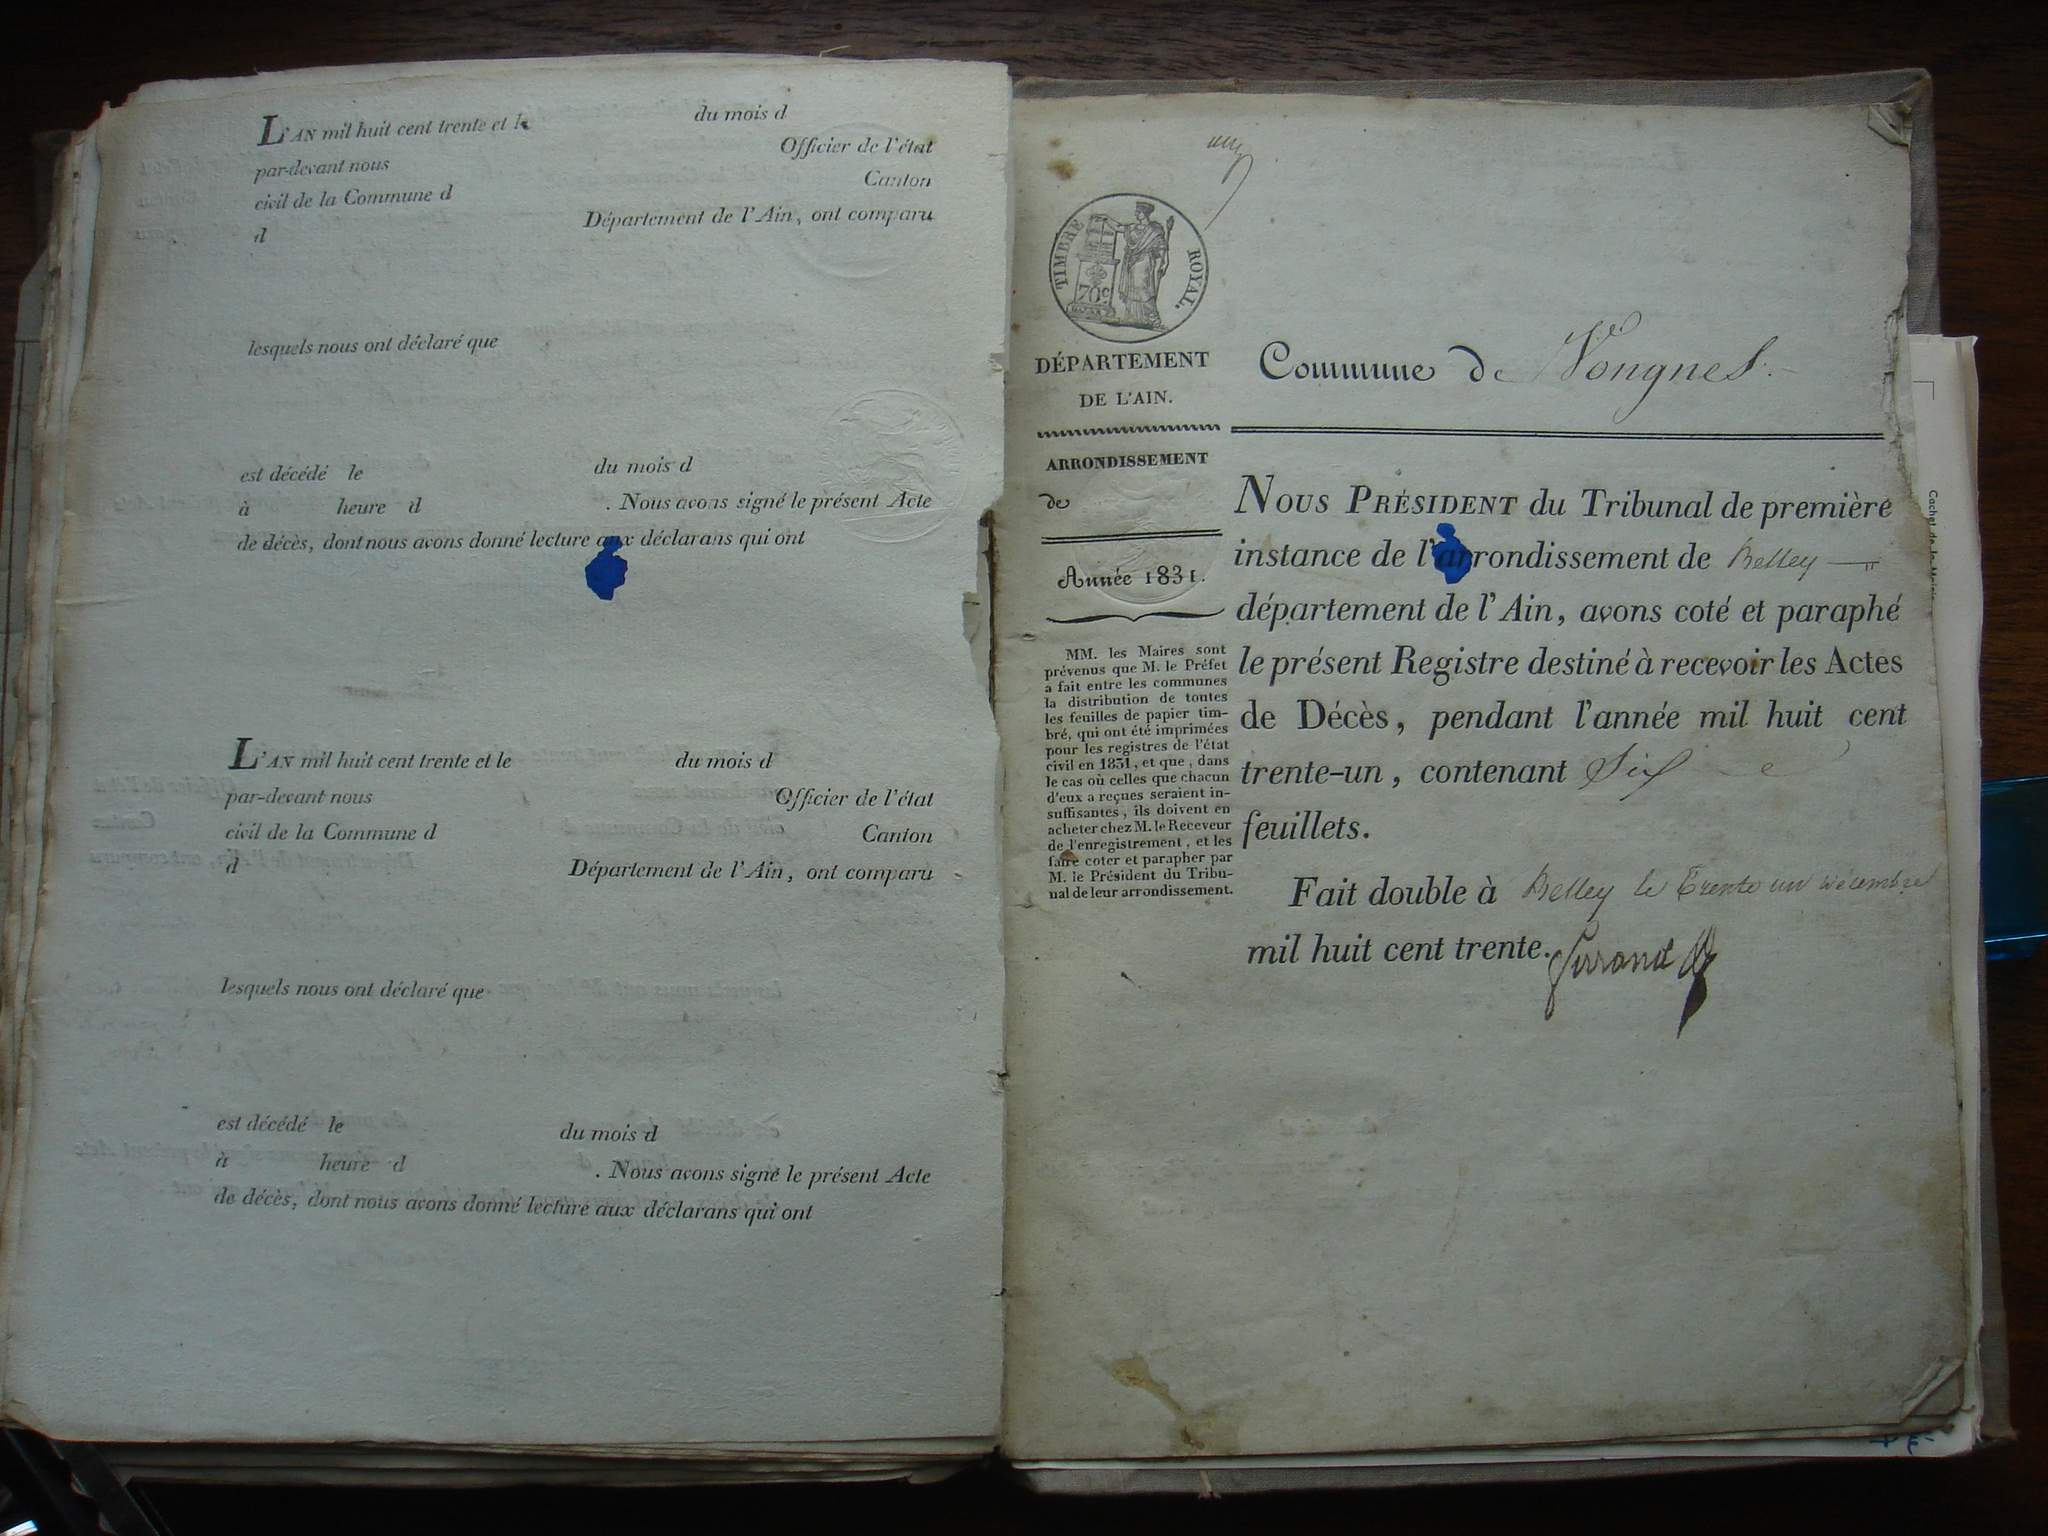 L'AN mil huit cent trente et le du mois d
par-devant nous Officier de l'état
civil de la Commune d Canton
d Département de l'Ain, ont comparu
lesquels nous ont déclaré que
est décédé le du mois d
à heure d . Nous avons signé le présent Acte
de décès, dont nous avons donné lecture aux déclarans qui ont
L'AN mil huit cent trente et le du mois d
par-devant nous Officier de l'état
civil de la Commune d Canton
d Département de l'Ain, ont comparu
lesquels nous ont déclaré que
est décédé le du mois d
à heure d . Nous avons signé le présent Acte
de décès, dont nous avons donné lecture aux déclarans qui ont
TIMBRE ROYAL.
70c
DÉPARTEMENT
DE L'AIN.
ARRONDISSEMENT
de
Année 1831.
MM. les Maires sont
prévenus que M. le Préfet
a fait entre les communes
la distribution de toutes
les feuilles de papier tim-
bré, qui ont été imprimées
pour les registres de l'état
civil en 1831, et que, dans
le cas où celles que chacun
d'eux a reçues seraient in-
suffisantes, ils doivent en
acheter chez M. le Receveur
de l'enregistrement, et les
faire coter et parapher par
M. le Président du Tribu-
nal de leur arrondissement.
Commune de Vongnes.
NOUS PRÉSIDENT du Tribunal de première
instance de l'arrondissement de Belley
département de l'Ain, avons coté et paraphé
le présent Registre destiné à recevoir les Actes
de Décès, pendant l'année mil huit cent
trente-un, contenant Six
feuillets.
Fait double à Belley le Trente un décembre
mil huit cent trente.
Cachet de la Mairie